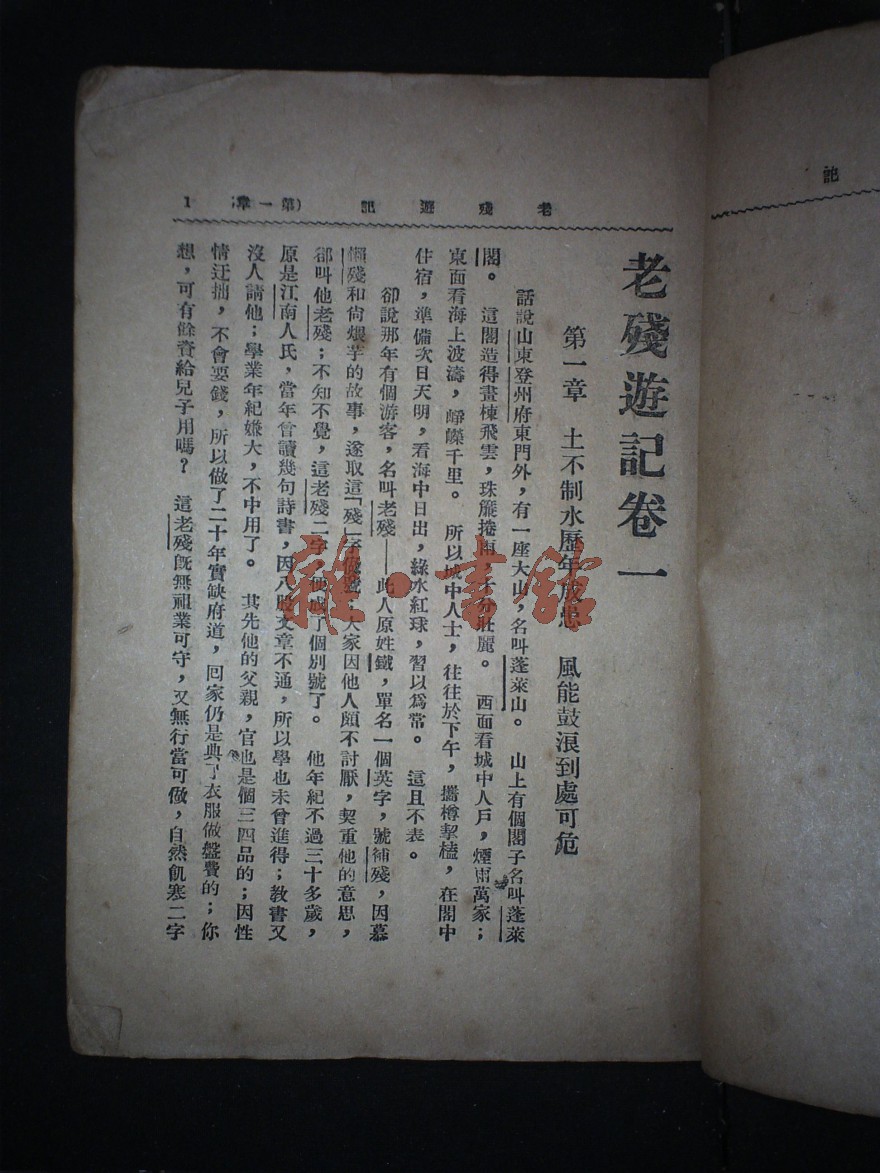 老殘遊記 (第一章) 1
記
老殘遊記卷一
第一章 土不制水歷年成患 風能鼓浪到處可危
話說山東登州府東門外，有一座大山，名叫蓬萊山。山上有個閣子名叫蓬萊
閣。這閣造得畫棟飛雲，珠簾捲雨，十分壯麗。西面看城中人戶，煙雨萬家；
東面看海上波濤，崢嶸千里。所以城中人士，往往於下午，攜樽挈榼，在閣中
住宿，準備次日天明，看海中日出，綠水紅球，習以爲常。這且不表。
卻說那年有個游客，名叫老殘——此人原姓鐵，單名一個英字，號補殘，因慕
懶殘和尙煨芋的故事，遂取這「殘」字做號；大家因他人頗不討厭，契重他的意思，
都叫他老殘；不知不覺，這老殘二字，便成了個別號了。他年紀不過三十多歲，
原是江南人氏，當年曾讀幾句詩書，因八股文章不通，所以學也未曾進得；教書又
沒人請他；學業年紀嫌大，不中用了。其先他的父親，官也是個三四品的；因性
情迂拙，不會要錢，所以做了二十年實缺府道，回家仍是典了衣服做盤費的；你
想，可有餘資給兒子用嗎？這老殘旣無祖業可守，又無行當可做，自然飢寒二字
雜·書館